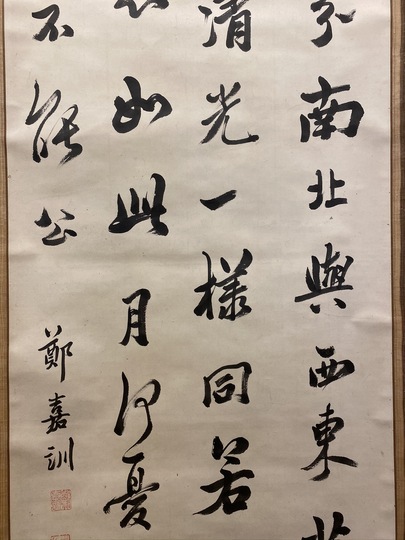 分南北與西東
清光一樣同若
如此月何憂
不能公
鄭嘉訓